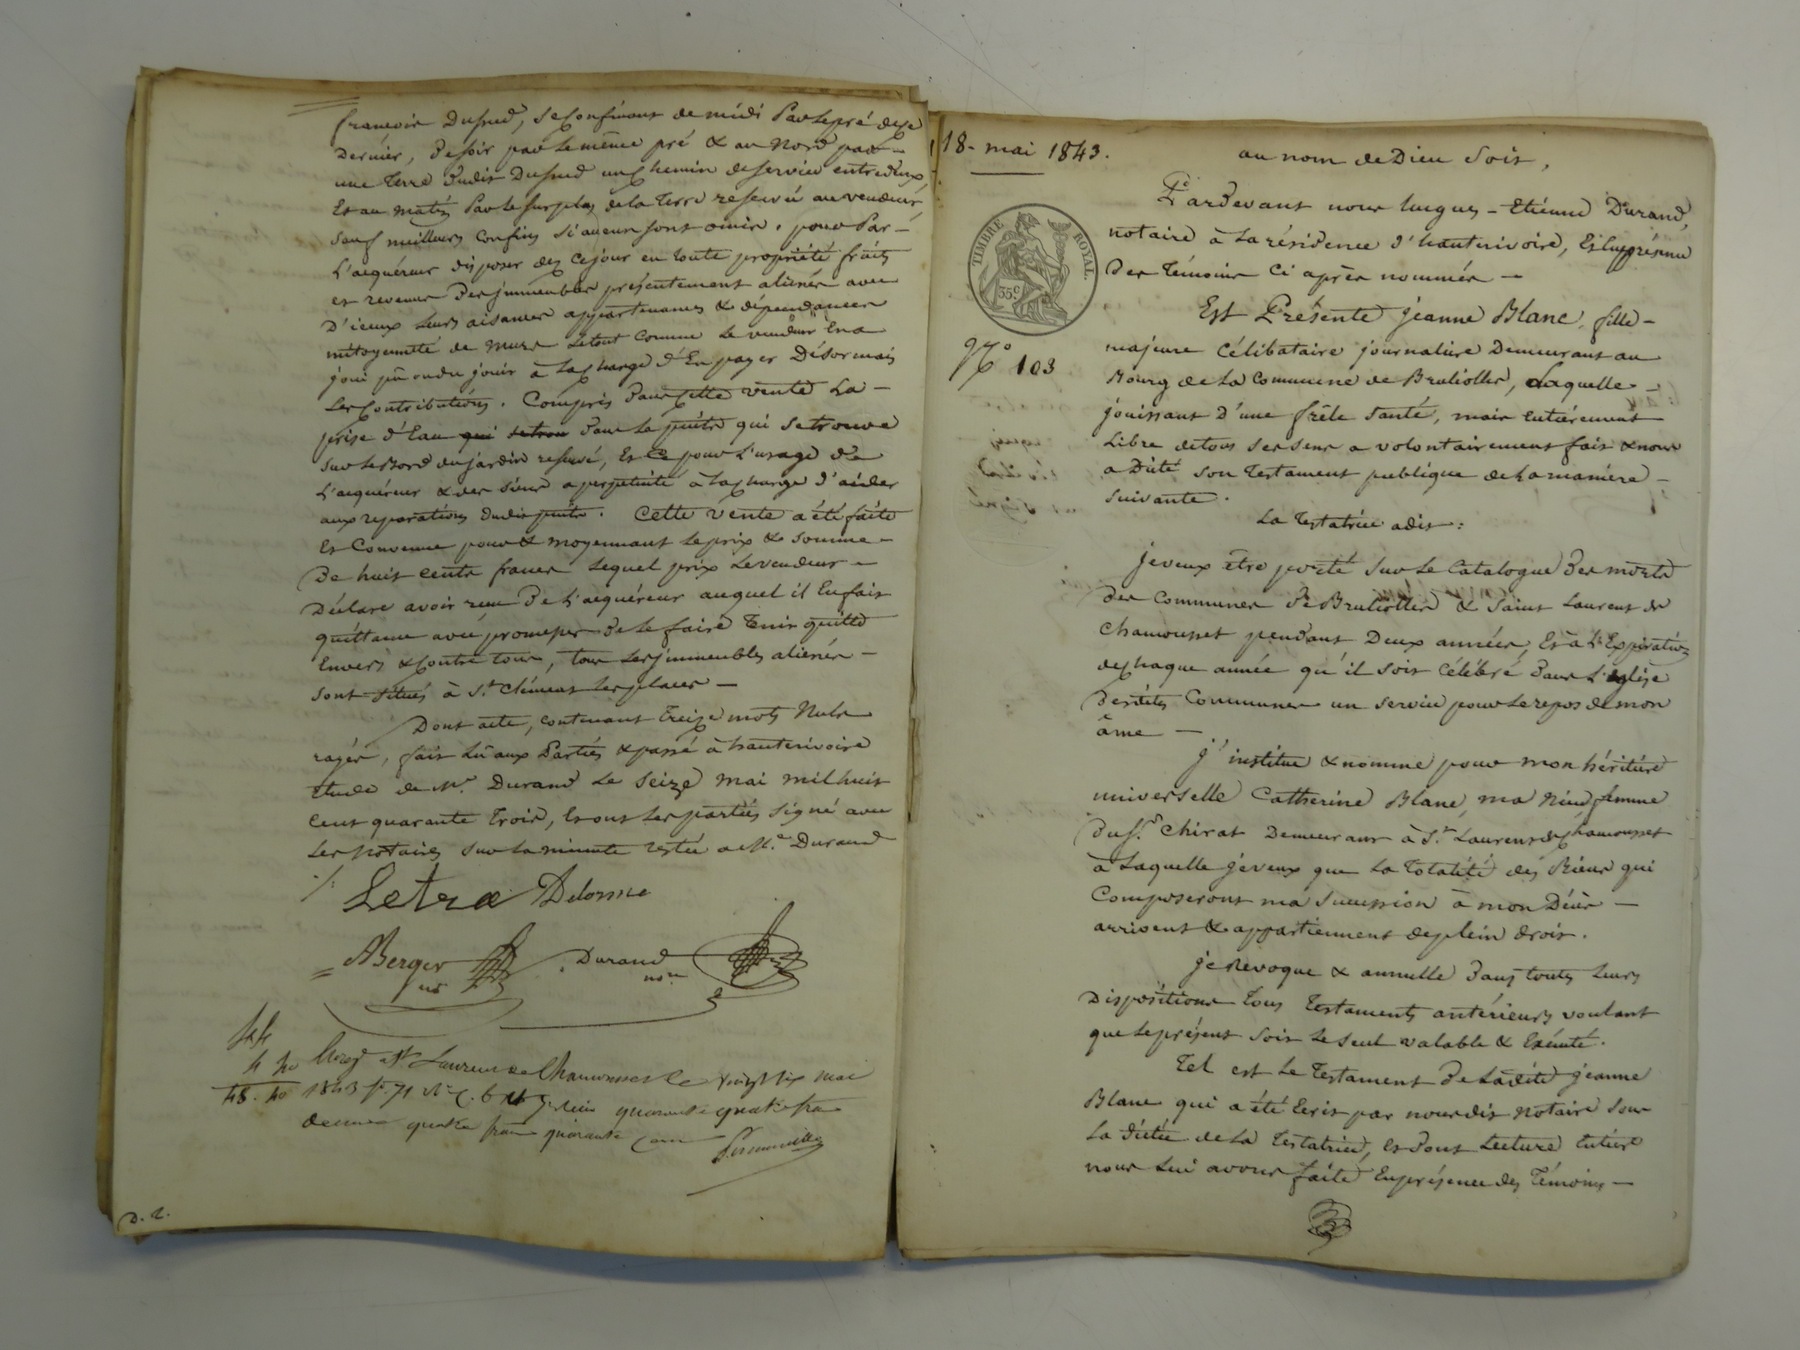 françois Dusud, se confinant de midi Par le pré de ce
Dernier, de soir par le même pré & au Nord par —
une Terre dudit Dusud un chemin de service entre deux
Et au matin Par le surplus de la Terre réservée au vendeur,
sauf meilleurs confins si aucuns sont omis. pour Par —
L'acquéreur disposer dès ce jour en toute propriété fruits
et revenus des immeubles présentement aliénés avec
D'iceux leurs aisances appartenances & dépendances
mitoyenneté de murs Le tout comme le vendeur En a
joui pû ou du jouir à la charge d'En payer Désormais
Les Contributions. Compris dans cette vente La —
prise d'Eau qui se trou dans la qui se trouve
sur le Bord du jardin réservé, Et ce pour l'usage de
L'acquéreur & des siens a perpétuité à la charge d'aider
aux reparations dudit . Cette vente a été faite
Et Convenue pour & moyennant le prix & somme —
De huit cents francs lequel prix Le vendeur —
Déclare avoir reçu De L'acquéreur auquel il En fait
quittance avec promesse de le faire Tenir quitte
Envers & Contre tous, tous les immeubles aliénés —
sont situés à St Clément les places —
Dont acte, contenant treize mots Nuls
rayés, fait Lu aux Parties & passé à hauterivoire
étude de Me. Durand Le seize mai mil huit
Cent quarante Trois, Et ont Les parties signé avec
Les Notaires sur la minute restée a Me. Durand
Letra Delorme
ABerger nre Durand nore
44
4 40
48. 40
Enreg. à St Laurent de Chamousset le vingt six mai
1843 fo. 71 Ro C. 6 Reçu quarante quatre fra
decime quatre francs quarante cent
D. 2.
18 - mai 1843.
au nom de Dieu soit,
Pardevant nous hugues - Etienne Durand,
notaire à la résidence d'hauterivoire, Et En présence
Des témoins Ci après nommés —
TIMBRE ROYAL
35 c
No 103
Est Présente jeanne Blanc, fille —
majeure Célibataire journalière Demeurant au
Bourg de la Commune de Brulioles, Laquelle —
jouissant D'une frêle santé, mais Entièrement
Libre de tous ses sens a volontairement fait & nous
a Dicté son Testament publique de la manière —
suivante.
La Testatrice a dit :
je veux être porté sur Le Catalogue Des morts
Des Communes De Brulioles & Saint Laurent de
chamousset pendant Deux années, Et à L'Expiration
de chaque année qu'il soit Célébré dans L'église
Desdites Communes un service pour le repos de mon
âme —
j'institue & nomme pour mon héritière
universelle Catherine Blanc, ma Nièce, femme
Du Sr. Chirat Demeurant à St. Laurent de chamousset
à Laquelle je veux que La Totalité des Biens qui
Composeront ma succession à mon Décès —
arrivent & appartiennent de plein droit.
je Revoque & annulle dans toutes leurs
Dispositions Tous Testaments antérieurs voulant
que le présent soit Le seul valable & Exécuté.
Tel est Le Testament De Ladite jeanne
Blanc qui a été Ecrit par nous dit Notaire sous
La dictée de la Testatrice, Et dont Lecture Entière
nous Lui avons faite En présence des Témoins —